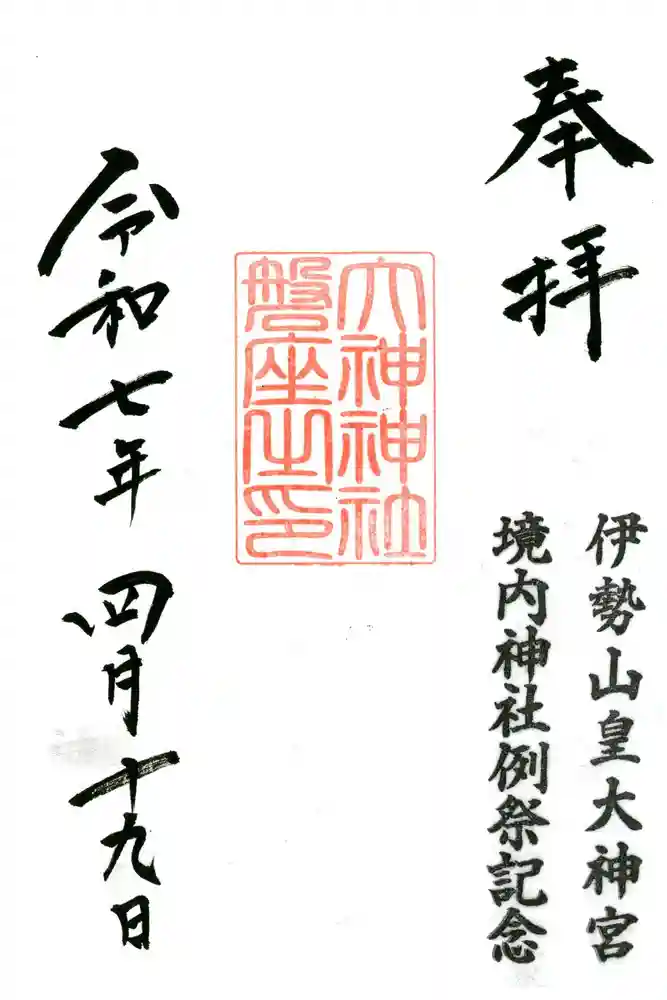 奉拝
伊勢山皇大神宮
境内神社例祭記念
大神神社
磐座之印
令和七年四月十九日